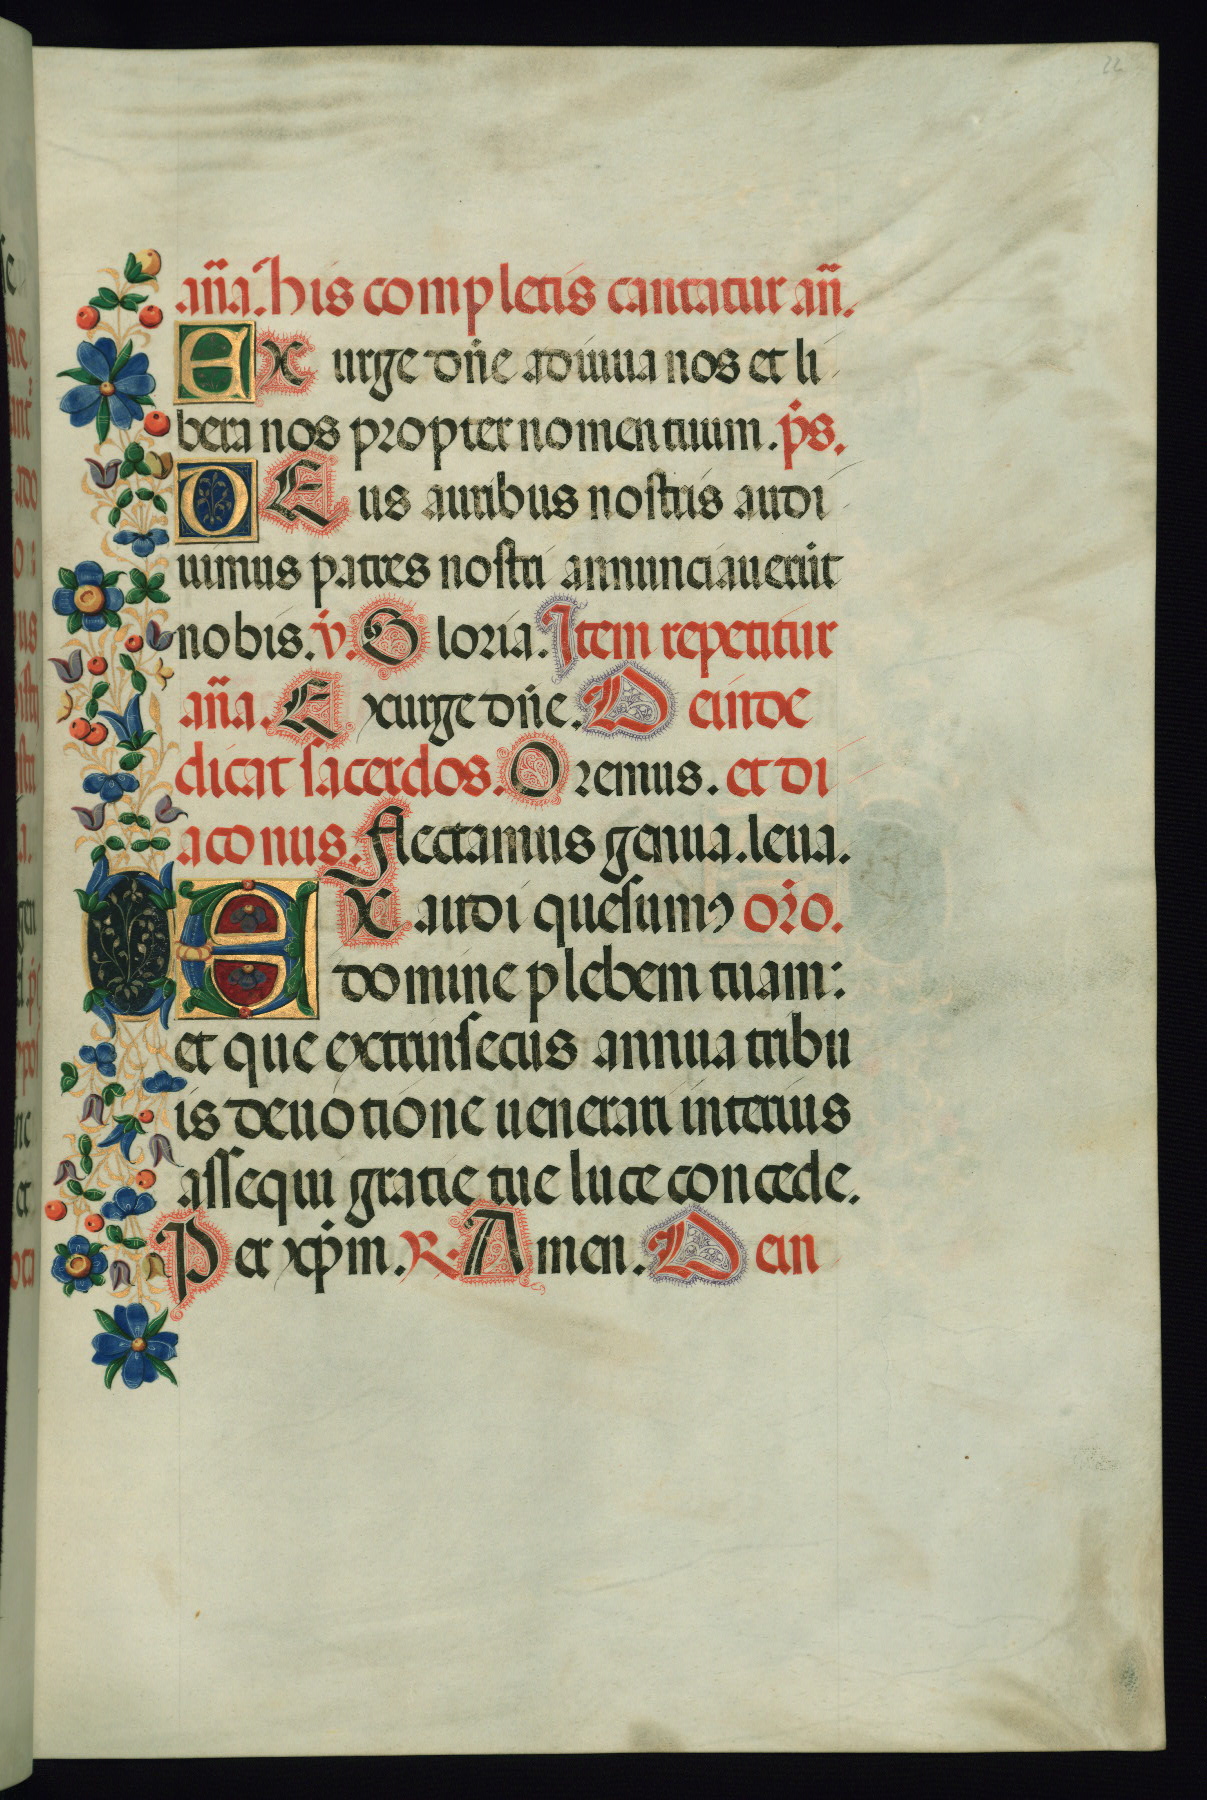 22
añ̃a. his completis cantatur añ.
EX urge dñe adiuua nos et li
bera nos propter nomen tuum. p̃s.
DE us auribus nostris audi
uimus patres nostri annunciauerũt
nobis. v̇. G loria. Item repetitur
añ̃a. E xurge dñe. D einde
dicat sacerdos. O remus. et di
aconus. Flectamus genua. leua.
EX audi quesumꝰ or̃o.
domine plebem tuam:
et que extrinsecus annua tribu
is deuotione uenerari interius
assequi gratie tue luce concede.
P er xp̃m. R. A men. D ein